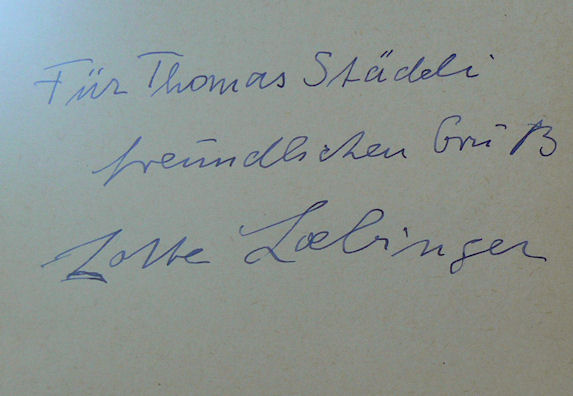 Für Thomas Städeli
freundlichen Gruß
Lotte Loebinger